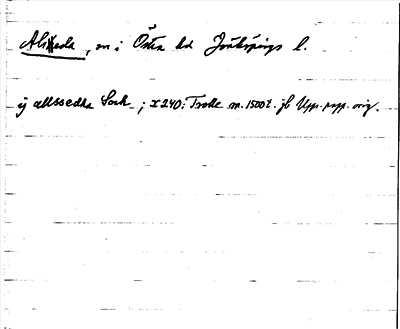 Alsheda, sn i Östra hd Jönköpings l.
ij allssedha Sock ; x240: Trolle m. 1500t. jb Upp. papp. orig.